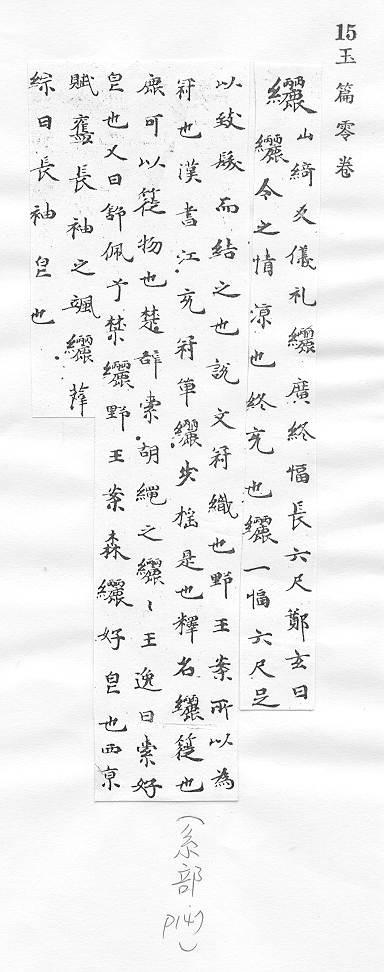 15 玉篇零卷
纚山綺反儀礼纚廣終幅長六尺鄭玄曰
纚今之情凉也終充也纚一幅六尺足
以致髮而結之也說文冠織也野王案所以為
冠也漢書江充冠單纚步摇是也釋名纚簁也
麁可以簁物也楚辞索胡繩之纚〻王逸曰索好
皃也又曰舒佩予綝纚野王案森纚好皃也西京
賦奮長袖之颯纚薛
綜曰長袖皃也
(糸部 P147)